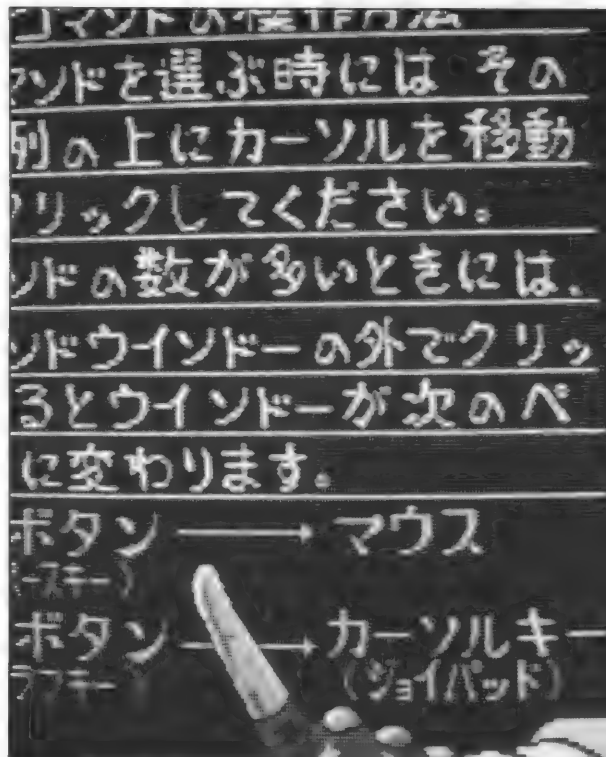 コマンドの操作方法
マンドを選ぶ時には その
列の上にカーソルを移動
クリックしてください。
ンドの数が多いときには、
ンドウインドーの外でクリッ
るとウインドーが次のペ
に変わります。
ボタン → マウス
ースキー)
ボタン → カーソルキー
(ジョイパッド)